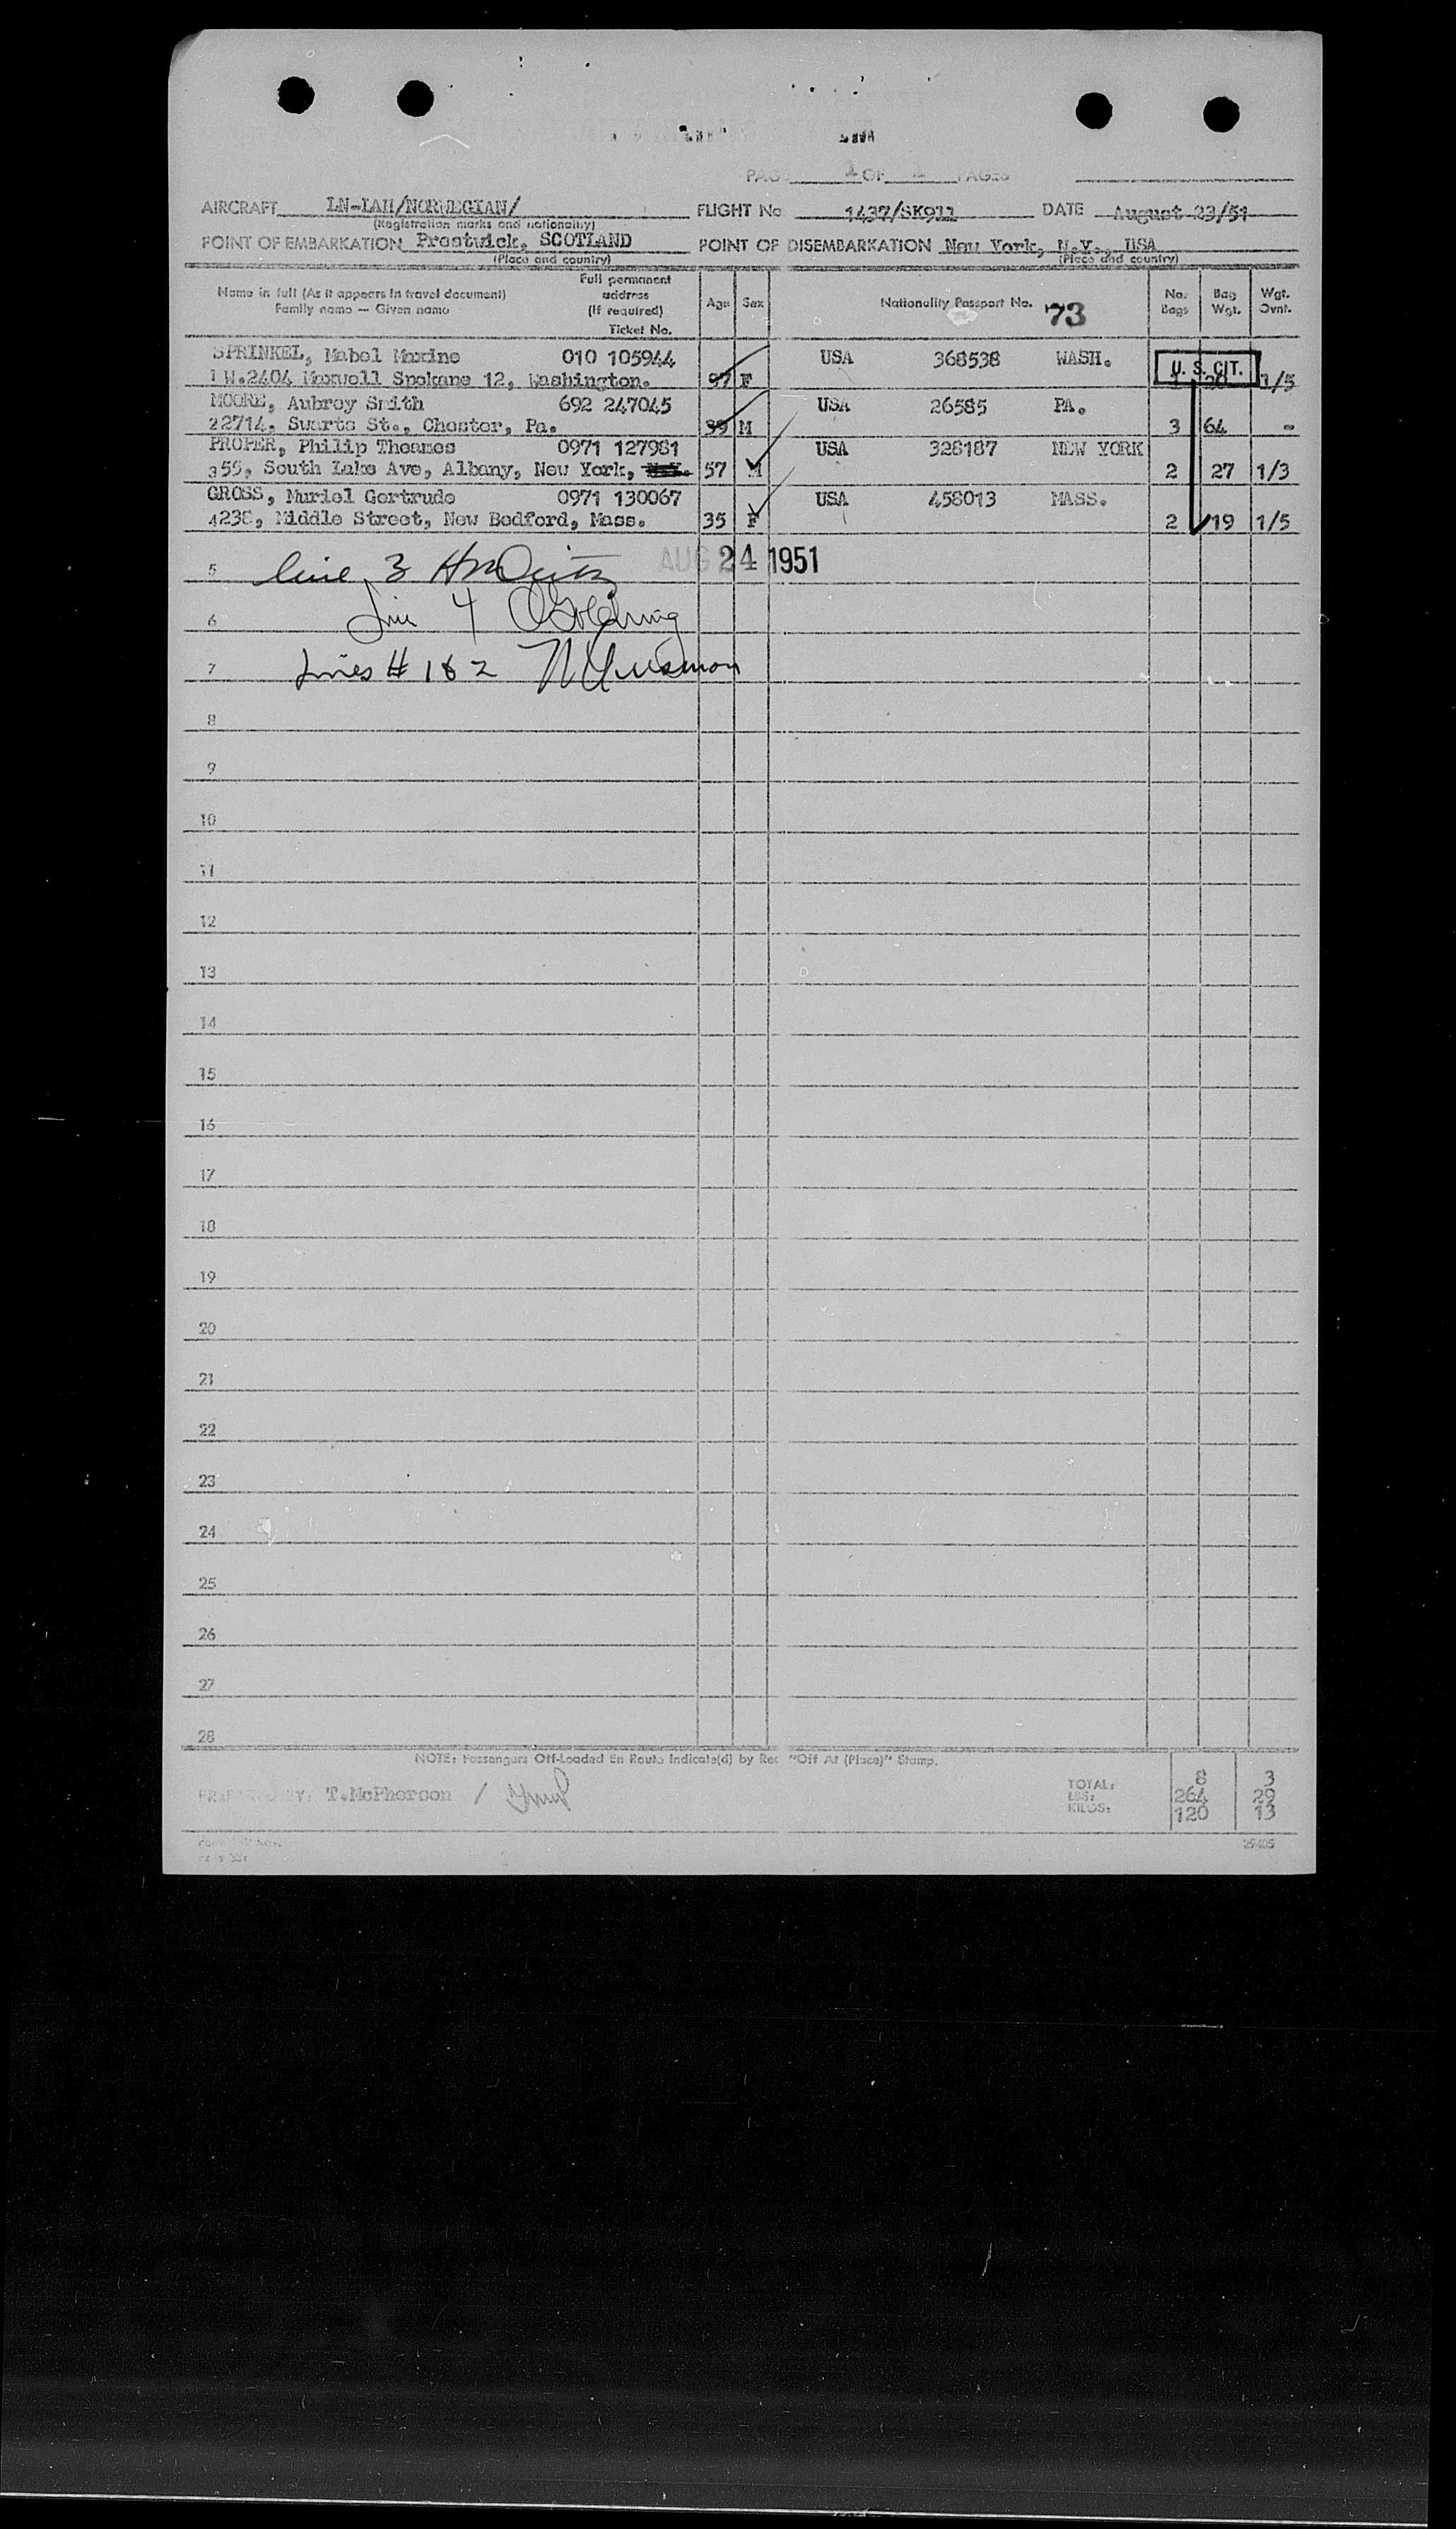 PAGE 1 OF 1 PAGES
AIRCRAFT LN-LAH/NORWEGIAN/ FLIGHT No 1437/SK911 DATE August 23/51
(Registration marks and nationality)
POINT OF EMBARKATION Prestwick, SCOTLAND POINT OF DISEMBARKATION New York, N.Y., USA
(Place and country) (Place and country)
Name in full (As it appears in travel document) Family name — Given name Full permanent address (If required) Ticket No. Age Sex Nationality Passport No. 73 No. Bags Bag Wgt. Wgt. Ovnt.
SPRINKEL, Mabel Maxine 010 105944 USA 368538 WASH. U. S. CIT.
1 W.2404 Maxwell Spokane 12, Washington. F 1/5
MOORE, Aubrey Smith 692 247045 USA 26585 PA.
2 2714, Swarts St., Chester, Pa. 39 M 3 64 -
PROPER, Philip Theames 0971 127981 USA 328187 NEW YORK
3 55, South Lake Ave, Albany, New York, 57 M 2 27 1/3
GROSS, Muriel Gertrude 0971 130067 USA 458013 MASS.
4 238, Middle Street, New Bedford, Mass. 35 F 2 19 1/5
AUG 24 1951
5 line 3
6 Line 4
7 Lines # 1 & 2
8
9
10
11
12
13
14
15
16
17
18
19
20
21
22
23
24
25
26
27
28
NOTE: Passengers Off-Loaded En Route Indicate(d) by Red "Off At (Place)" Stamp.
PREPARED BY: T.McPherson /
TOTAL: 8 3
LBS: 264 29
KILOS: 120 13
29405